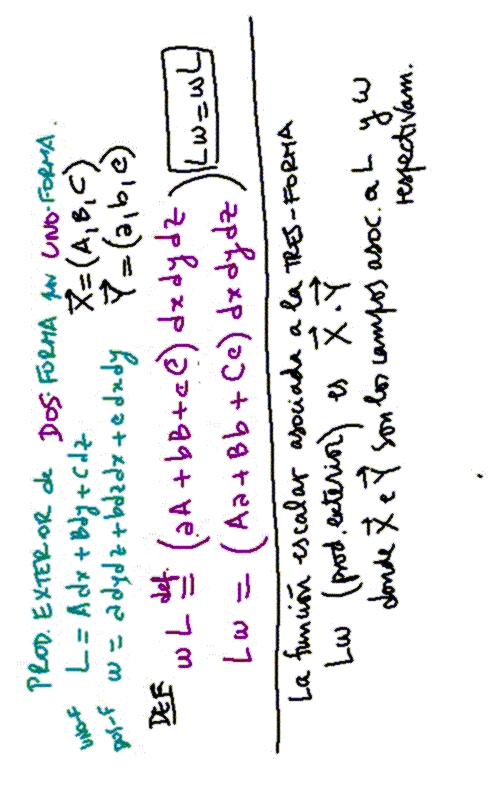 PROD. EXTERIOR de DOS-FORMA por UNO-FORMA.
UNO-F L = Adx + Bdy + Cdz X⃗ = (A, B, C)
DOS-F ω = adydz + bdzdx + cdxdy Y⃗ = (a, b, c)
DEF ωL =def. (aA + bB + cC) dxdydz
Lω = (Aa + Bb + Cc) dxdydz Lω = ωL
La función escalar asociada a la TRES-FORMA
Lω (prod. exterior) es X⃗ . Y⃗
donde X⃗ e Y⃗ son los campos asoc. a L y ω
respectivam.